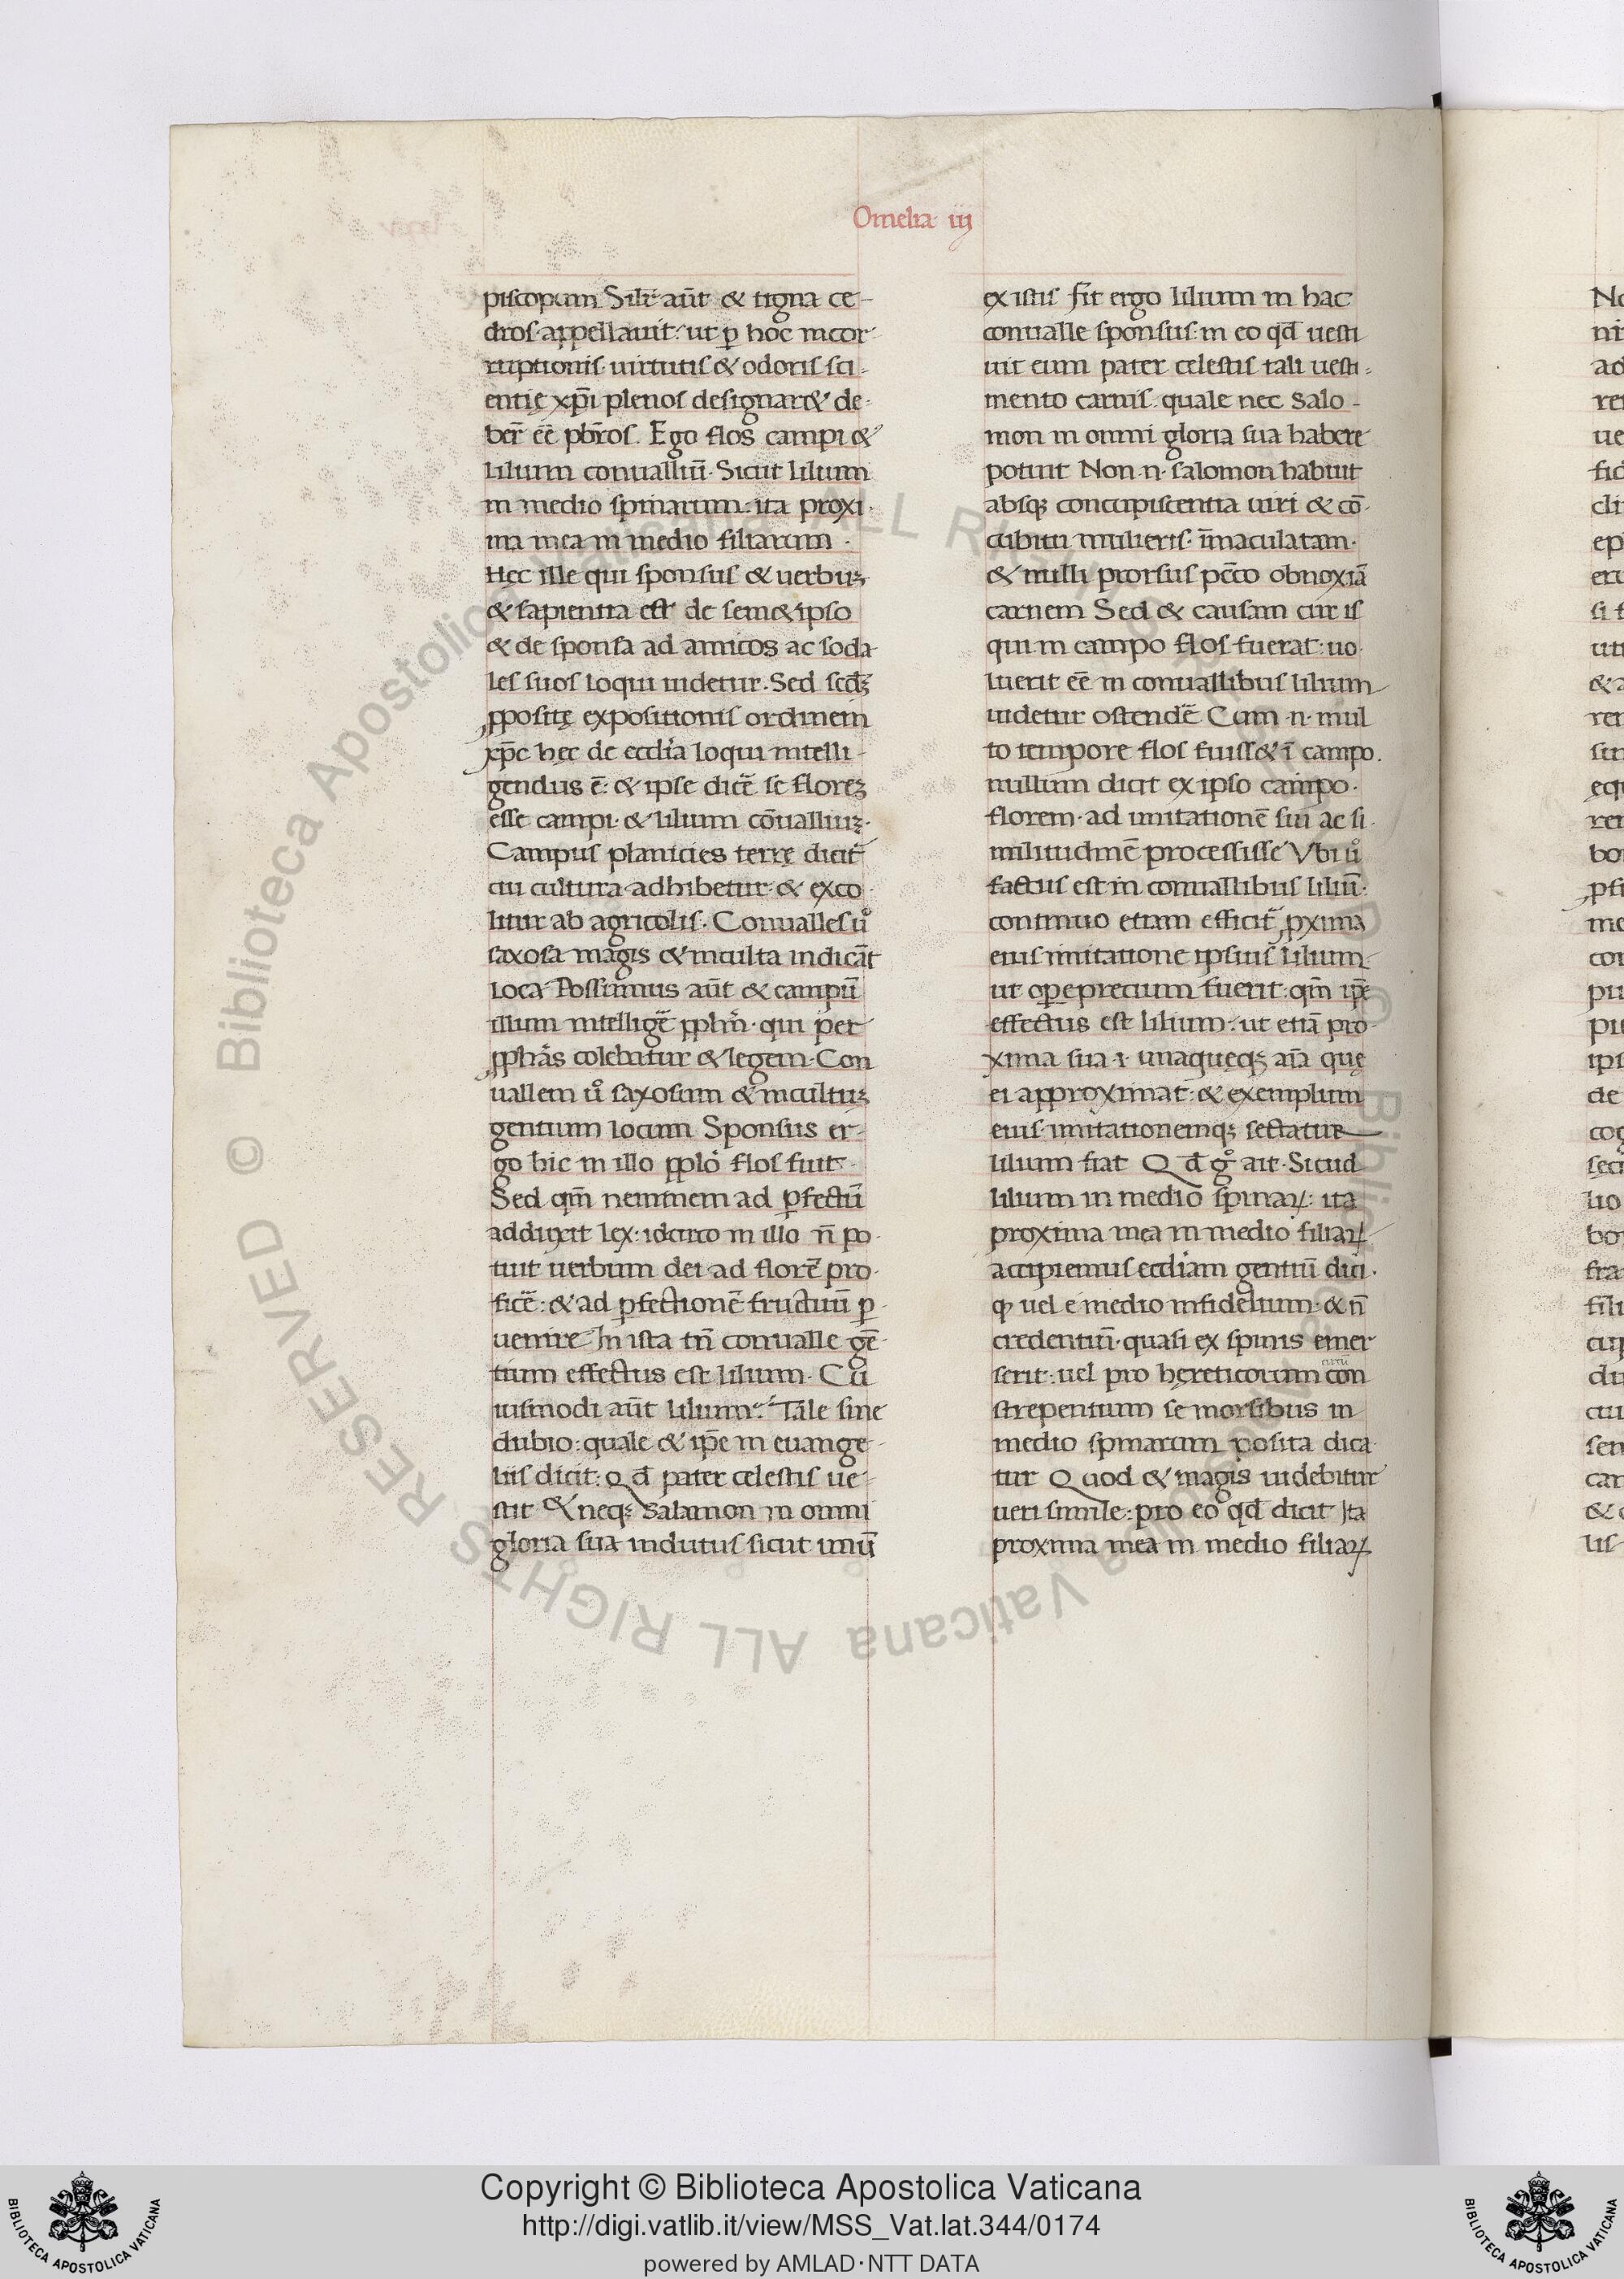 Omelia iij
piscopum Silr̄ aūt & tigna ce-
dros appellauit: ut ꝑ hoc incor-
ruptionis uirtutis & odoris sci-
entię xp̄i plenos designar& de-
ber̄ eē̄ pb̄ros. Ego flos campi &
lilium conualliū. Sicut lilium
in medio spinarum: ita proxi-
ma mea in medio filiarum.
Hęc ille qui sponsus & uerbuꝫ
& sapientia est de sem&ipso
& de sponsa ad amicos ac soda-
les suos loqui uidetur. Sed scd̄ꝫ
ꝓpositę expositionis ordinem
xp̄c hęc de eccl̄ia loqui intelli-
gendus ē: & ipse dicē se floreꝫ
esse campi & lilium cōualliuꝫ.
Campus planicies terrę dicit᷑
cui cultura adhibetur & exco-
litur ab agricolis. Conualles uͦ
saxosa magis & inculta indicāt
loca Possumus aūt & campū
illum intelligē pplm̄ qui per
ꝓph̄as colebatur & legem. Con
uallem uͦ saxosum & incultuꝫ
gentium locum Sponsus er-
go hic in illo pplo̕ flos fuit.
Sed qm̄ neminem ad ꝑfectū
adduxit lex: idcirco in illo n̄ po-
tuit uerbum dei ad florē pro-
ficē: & ad ꝑfectionē fructuū ꝑ-
uenire In ista tn̄ conualle gē-
tium effectus est lilium. Cu
iusmodi aūt lilium: Tale sine
dubio: quale & ip̄e in euange-
liis dicit: Qd̄ pater celestis ue-
stit & neqꝫ Salamon in omni
gloria sua indutus sicut unū
ex istis Fit ergo lilium in hac
conualle sponsus in eo qd̄ uesti
uit eum pater celestis tali uesti-
mento carnis. quale nec Salo-
mon in omni gloria sua habere
potuit Non .n. salomon habuit
absqꝫ concupiscentia uiri & cō-
cubitu mulieris īmaculatam
& nulli prorsus pc̄co obnoxiā
carnem Sed & causam cur is
qui in campo flos fuerat: uo-
luerit eē̄ in conuallibus lilium
uidetur ostendē̄ Cum .n. mul
to tempore flos fuiss& ī campo.
nullum dicit ex ipso campo
florem ad imitationē sui ac si-
militudinē processisse Vbi uͦ
factus est in conuallibus liliū:
continuo etiam efficit᷑ ꝓxima
eius imitatione ipsius lilium
ut operepretium fuerit qm̄ ip̄e
effectus est lilium: ut etiā pro-
xima sua .i. unaquęqꝫ aīa quę
ei approximat & exemplum
eius imitationemqꝫ sectatur
lilium fiat Qd̄ gͦ ait. Sicud
lilium in medio spinaꝝ: ita
proxima mea in medio filiaꝝ
accipiemus eccl̄iam gentiū dici.
ꝙ uel e medio infidelium & n̄
credentiū quasi ex spinis emer
serit: uel pro hęreticorum con
strepentium se morsibus in
medio spinarum posita dica
tur Quod & magis uidebitur
ueri simile: pro eo qd̄ dicit Ita
proxima mea in medio filiaꝝ
Copyright © Biblioteca Apostolica Vaticana
http://digi.vatlib.it/view/MSS_Vat.lat.344/0174
powered by AMLAD·NTT DATA